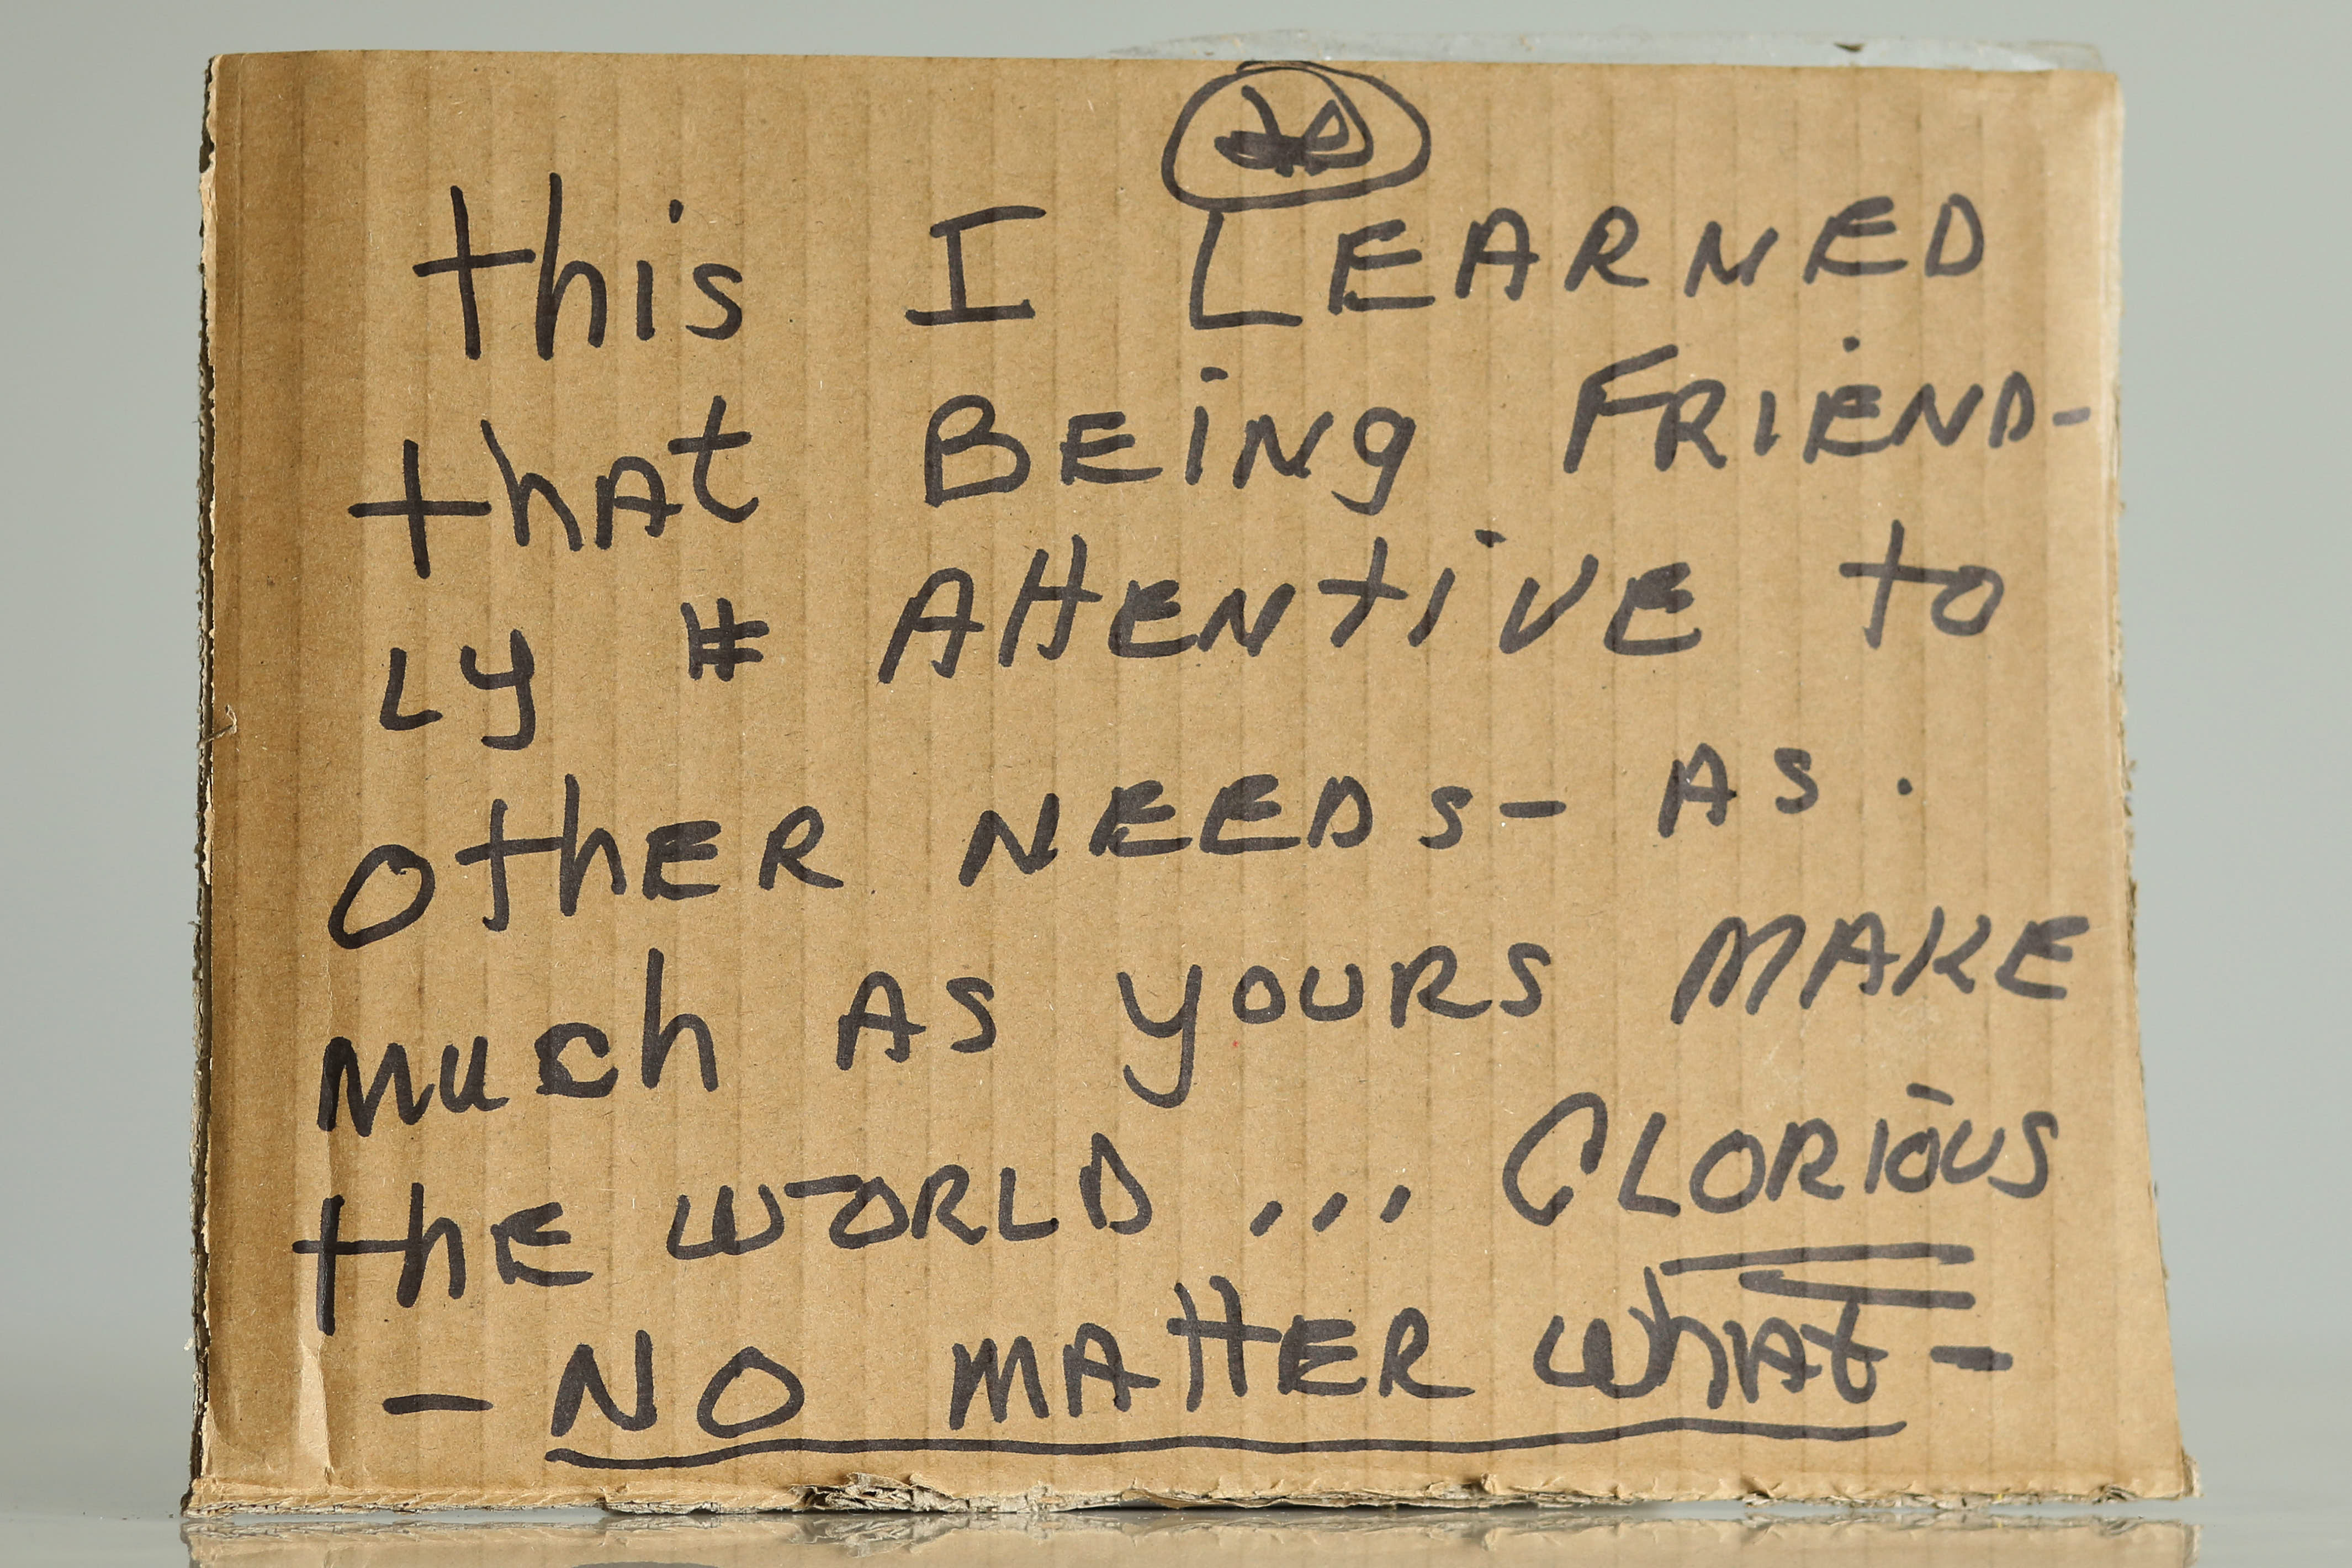 this I LEARNED
that BEiNg FRiEND-
Ly # AttENtiVE to
OthER NEEDs- As.
Much As yOURS MAKE
thE WORLD ... GLORiOUS
- NO MAttER WhAt -